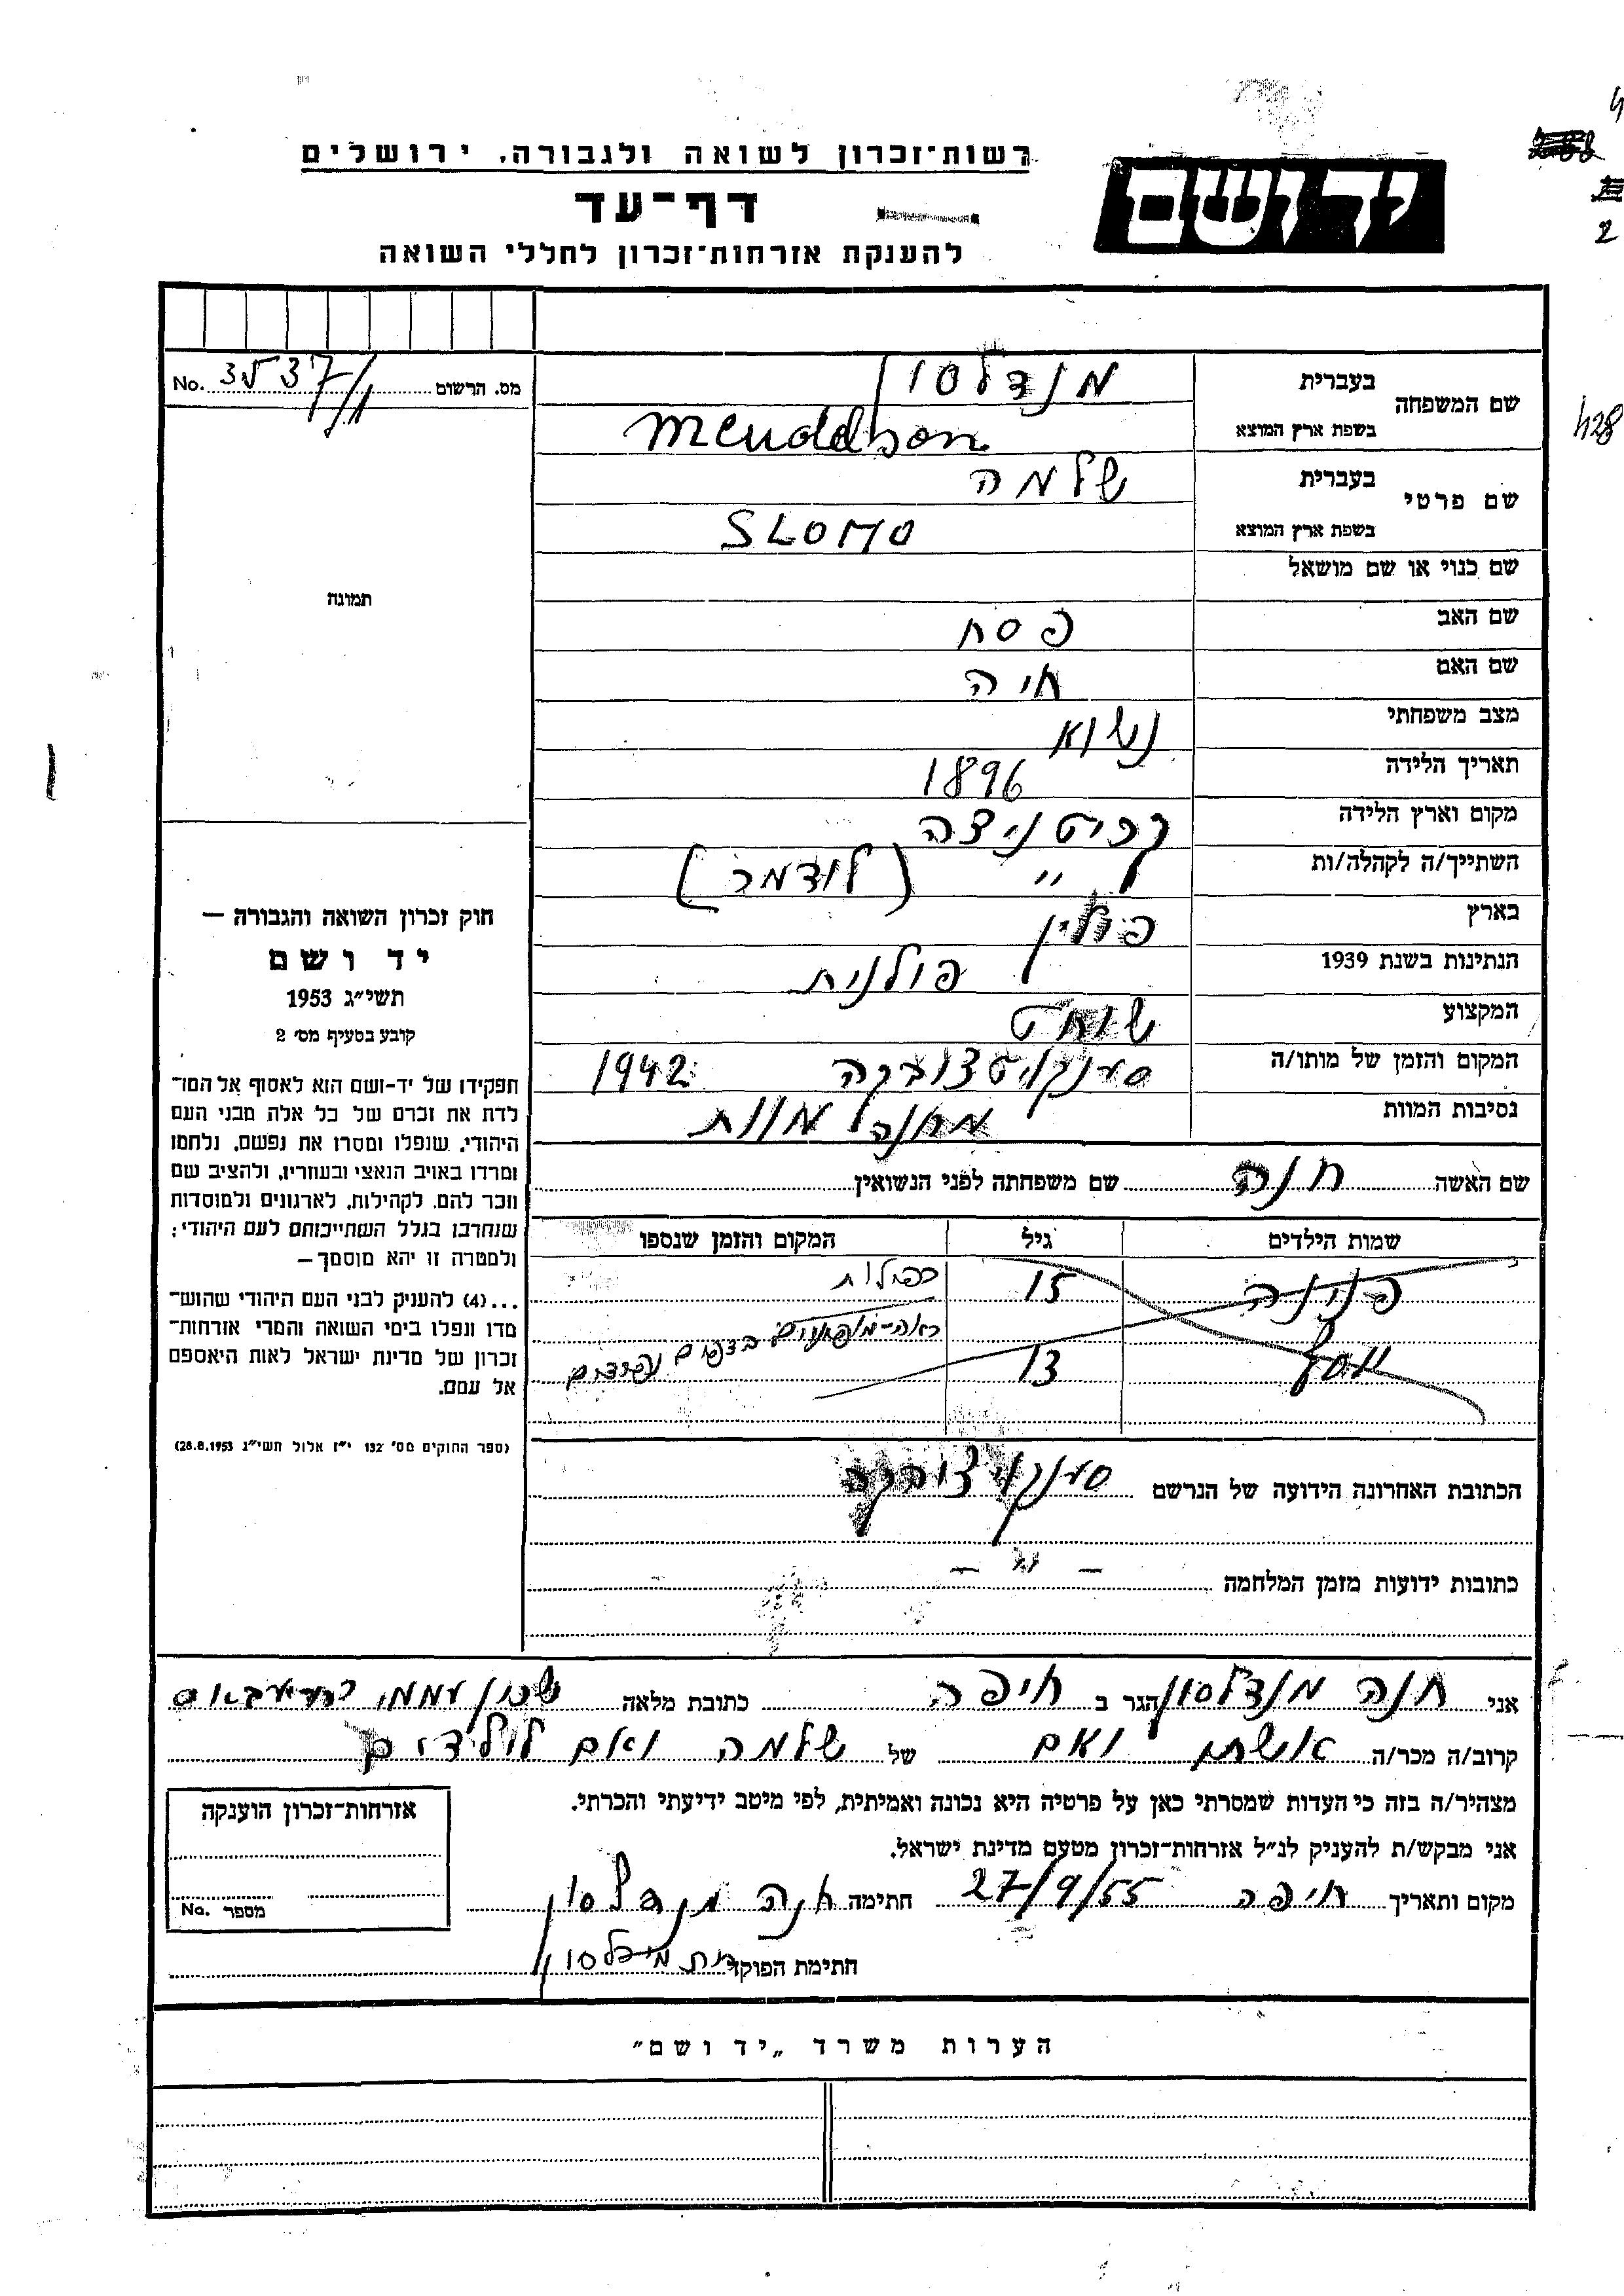 רשות־זכרון לשואה ולגבורה, ירושלים
יד ושם
דף־עד
להענקת אזרחות־זכרון לחללי השואה
מס. הרשום No.
שם המשפחה בעברית מנדלסון
בשפת ארץ המוצא Mendelson
שם פרטי בעברית שלמה
בשפת ארץ המוצא SLOMO
שם כנוי או שם מושאל
שם האב פסח
שם האם חיה
מצב משפחתי נשוא
תאריך הלידה 1896
מקום וארץ הלידה
השתייך/ה לקהלה/ות " (לודמר)
בארץ פולין
הנתינות בשנת 1939 פולנית
המקצוע שוחט
המקום והזמן של מותו/ה 1942
נסיבות המוות מחנה מוות
תמונה
חוק זכרון השואה והגבורה —
יד ושם
תשי״ג 1953
קובע בסעיף מס׳ 2
תפקידו של יד-ושם הוא לאסוף אל המו־
לדת את זכרם של כל אלה מבני העם
היהודי, שנפלו ומסרו את נפשם, נלחמו
ומרדו באויב הנאצי ובעוזריו, ולהציב שם
וזכר להם, לקהילות, לארגונים ולמוסדות
שנחרבו בגלל השתייכותם לעם היהודי;
ולמטרה זו יהא מוסמך—
...(4) להעניק לבני העם היהודי שהוש־
מדו ונפלו בימי השואה והמרי אזרחות־
זכרון של מדינת ישראל לאות היאספם
אל עמם.
(ספר החוקים מס׳ 132 י״ז אלול תשי״ג 28.8.1953)
שם האשה חנה שם משפחתה לפני הנשואין
שמות הילדים גיל המקום והזמן שנספו
פנינה 15
יוסף 13
הכתובת האחרונה הידועה של הנרשם
כתובות ידועות מזמן המלחמה – " –
אני חנה מנדלסון הגר ב חיפה כתובת מלאה שכון עממי
קרוב/ה מכר/ה אשתו ואם של שלמה ואם לילדים
מצהיר/ה בזה כי העדות שמסרתי כאן על פרטיה היא נכונה ואמיתית, לפי מיטב ידיעתי והכרתי.
אני מבקש/ת להעניק לנ״ל אזרחות־זכרון מטעם מדינת ישראל.
מקום ותאריך חיפה 27/9/55 חתימה חנה מנדלסון
חתימת הפוקד
אזרחות־זכרון הוענקה
מספר No.
הערות משרד „יד ושם"